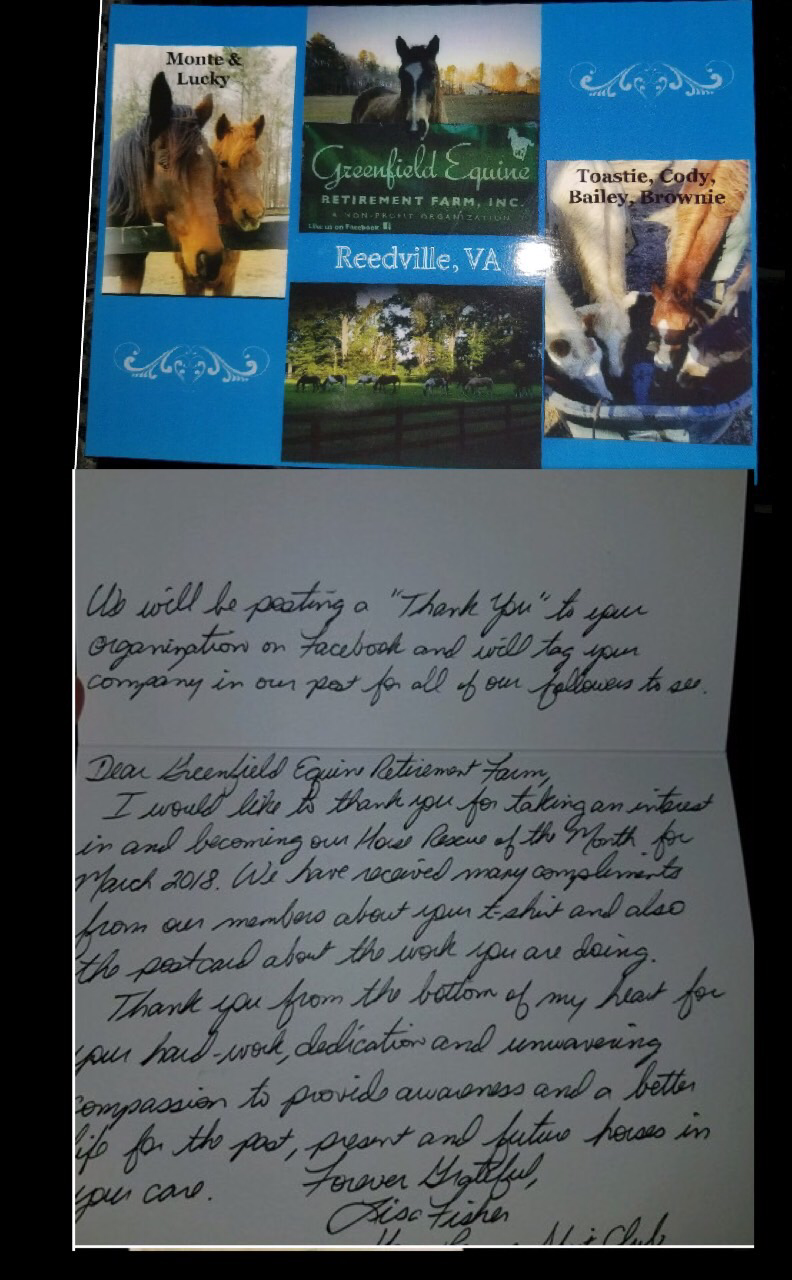 Monte &
Lucky
Greenfield Equine
RETIREMENT FARM, INC.
A NON-PROFIT ORGANIZATION
Like us on Facebook
Reedville, VA
Toastie, Cody,
Bailey, Brownie
We will be posting a "Thank You" to your
organization on Facebook and will tag your
company in our post for all of our followers to see.
Dear Greenfield Equine Retirement Farm,
I would like to thank you for taking an interest
in and becoming our Horse Rescue of the Month for
March 2018. We have received many compliments
from our members about your t-shirt and also
the postcard about the work you are doing.
Thank you from the bottom of my heart for
your hard-work, dedication and unwavering
compassion to provide awareness and a better
life for the past, present and future horses in
your care.
Forever Grateful,
Lisa Fisher
Club